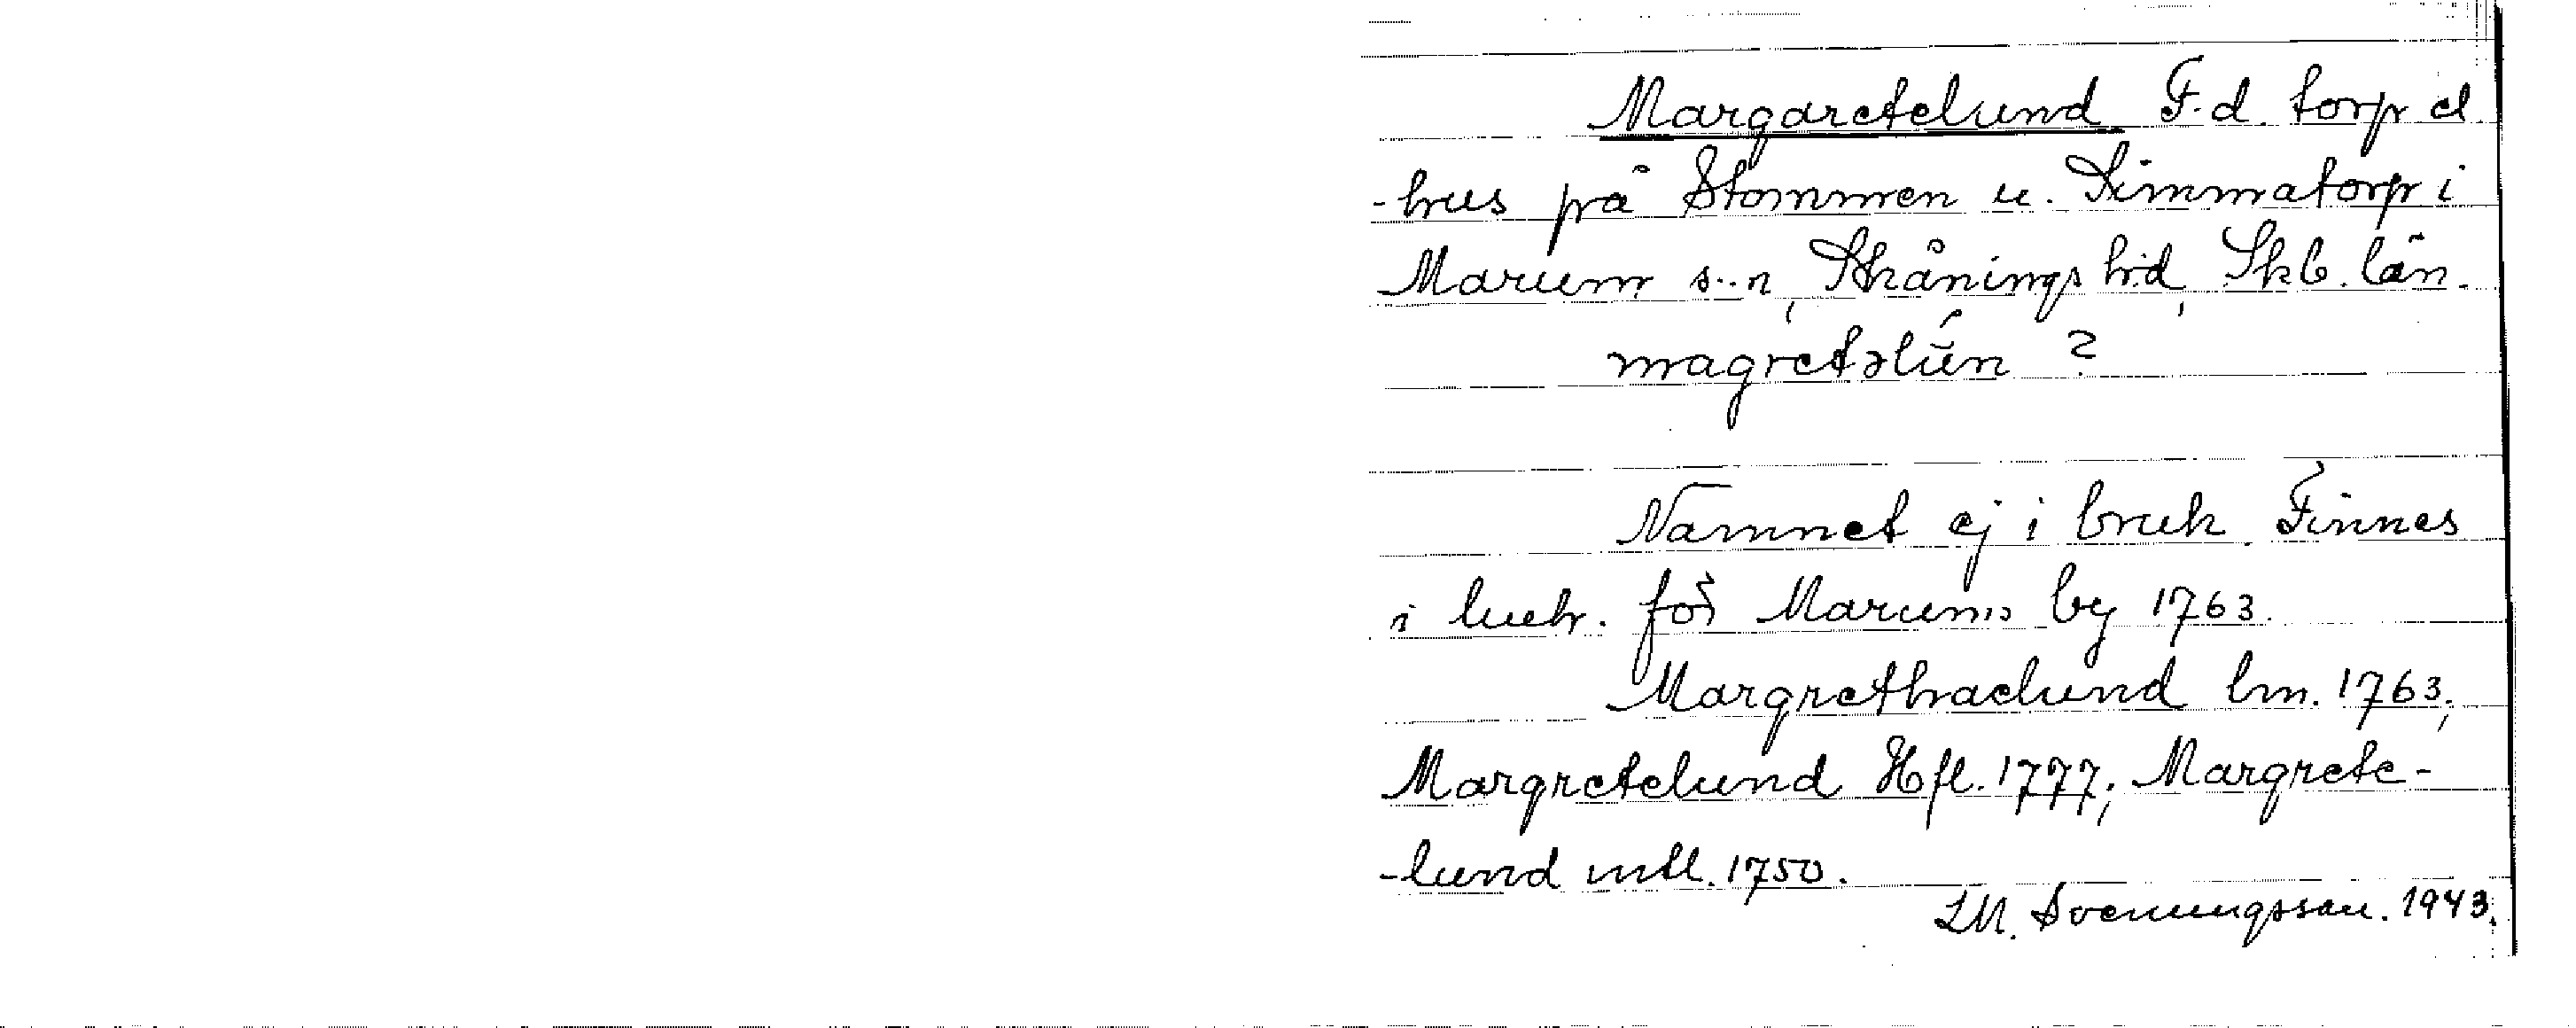 Margaretelund. F.d. torp el.
-hus på Stommen u. Simmatorp i
Marum s:n, Skånings h:d, Skb. län.
magretəlún ?
Namnet ej i bruk. Finnes
i lueh. för Marums by 1763.
Margrethaelund lm. 1763;
Margretelund Hfl. 1777; Margrete-
-lund mtl. 1750.
LM. Svenungsson. 1943.